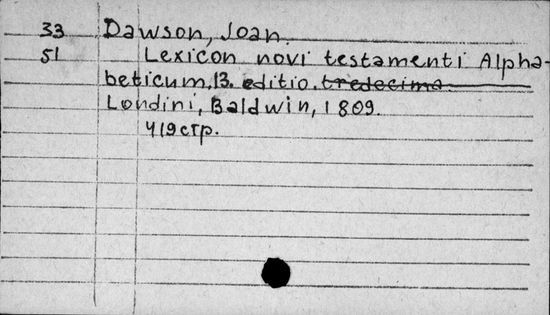 33 Dawson, Joan.
51 Lexicon novi testamenti Alpha-
beticum, 13. editio. tredecima
Londini, Baldwin, 1809.
419 стр.